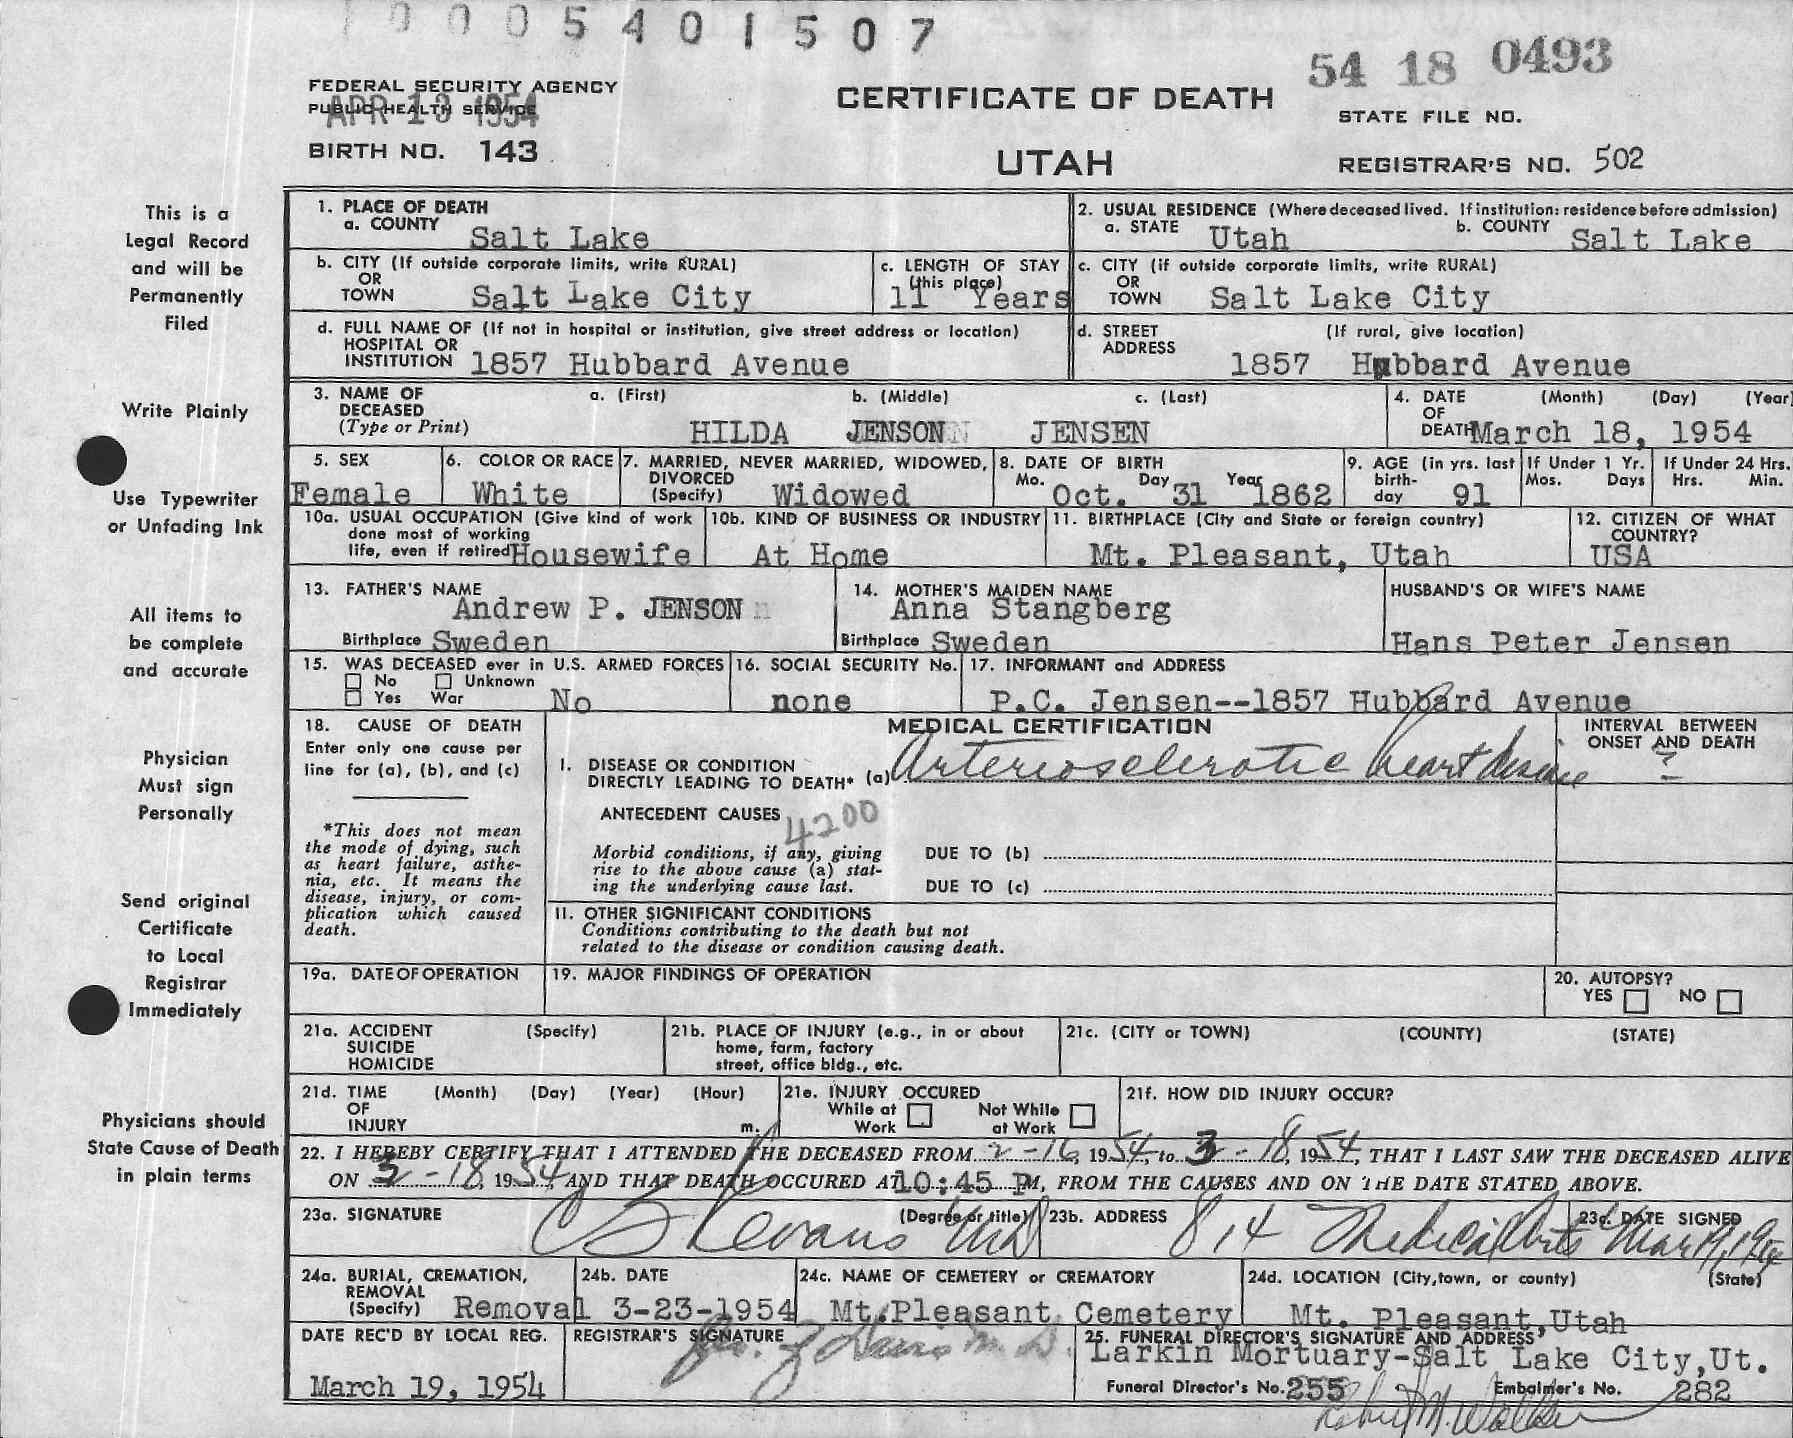 10005401507
54 18 0493
FEDERAL SECURITY AGENCY
PUBLIC HEALTH SERVICE
APR 13 1954
CERTIFICATE OF DEATH
STATE FILE NO.
BIRTH NO. 143
UTAH
REGISTRAR'S NO. 502
This is a
Legal Record
and will be
Permanently
Filed
Write Plainly
Use Typewriter
or Unfading Ink
All items to
be complete
and accurate
Physician
Must sign
Personally
Send original
Certificate
to Local
Registrar
Immediately
Physicians should
State Cause of Death
in plain terms
1. PLACE OF DEATH
a. COUNTY Salt Lake
2. USUAL RESIDENCE (Where deceased lived. If institution: residence before admission)
a. STATE Utah b. COUNTY Salt Lake
b. CITY (If outside corporate limits, write RURAL)
OR
TOWN Salt Lake City
c. LENGTH OF STAY
(this place)
11 Years
c. CITY (if outside corporate limits, write RURAL)
OR
TOWN Salt Lake City
d. FULL NAME OF (If not in hospital or institution, give street address or location)
HOSPITAL OR
INSTITUTION 1857 Hubbard Avenue
d. STREET (If rural, give location)
ADDRESS
1857 Hubbard Avenue
3. NAME OF a. (First) b. (Middle) c. (Last)
DECEASED
(Type or Print) HILDA JENSON JENSEN
4. DATE (Month) (Day) (Year)
OF
DEATH March 18, 1954
5. SEX
Female
6. COLOR OR RACE
White
7. MARRIED, NEVER MARRIED, WIDOWED,
DIVORCED
(Specify) Widowed
8. DATE OF BIRTH
Mo. Oct. Day 31 Year 1862
9. AGE (in yrs. last
birth-
day 91
If Under 1 Yr.
Mos. Days
If Under 24 Hrs.
Hrs. Min.
10a. USUAL OCCUPATION (Give kind of work
done most of working
life, even if retired Housewife
10b. KIND OF BUSINESS OR INDUSTRY
At Home
11. BIRTHPLACE (City and State or foreign country)
Mt. Pleasant, Utah
12. CITIZEN OF WHAT
COUNTRY?
USA
13. FATHER'S NAME
Andrew P. JENSON
Birthplace Sweden
14. MOTHER'S MAIDEN NAME
Anna Stangberg
Birthplace Sweden
HUSBAND'S OR WIFE'S NAME
Hans Peter Jensen
15. WAS DECEASED ever in U.S. ARMED FORCES
No Unknown
Yes War No
16. SOCIAL SECURITY No.
none
17. INFORMANT and ADDRESS
P.C. Jensen--1857 Hubbard Avenue
18. CAUSE OF DEATH
Enter only one cause per
line for (a), (b), and (c)
*This does not mean
the mode of dying, such
as heart failure, asthe-
nia, etc. It means the
disease, injury, or com-
plication which caused
death.
MEDICAL CERTIFICATION
INTERVAL BETWEEN
ONSET AND DEATH
?
I. DISEASE OR CONDITION
DIRECTLY LEADING TO DEATH* (a) Arteriosclerotic heart disease
ANTECEDENT CAUSES
4200
Morbid conditions, if any, giving
rise to the above cause (a) stat-
ing the underlying cause last.
DUE TO (b)
DUE TO (c)
II. OTHER SIGNIFICANT CONDITIONS
Conditions contributing to the death but not
related to the disease or condition causing death.
19a. DATE OF OPERATION
19. MAJOR FINDINGS OF OPERATION
20. AUTOPSY?
YES NO
21a. ACCIDENT (Specify)
SUICIDE
HOMICIDE
21b. PLACE OF INJURY (e.g., in or about
home, farm, factory
street, office bldg., etc.
21c. (CITY or TOWN) (COUNTY) (STATE)
21d. TIME (Month) (Day) (Year) (Hour)
OF
INJURY m.
21e. INJURY OCCURED
While at Work Not While at Work
21f. HOW DID INJURY OCCUR?
22. I HEREBY CERTIFY THAT I ATTENDED THE DECEASED FROM 2-16, 1954, to 3-18, 1954, THAT I LAST SAW THE DECEASED ALIVE
ON 3-18, 1954, AND THAT DEATH OCCURED AT 10:45 P M, FROM THE CAUSES AND ON THE DATE STATED ABOVE.
23a. SIGNATURE (Degree or title)
Evans MD
23b. ADDRESS
814 Medical Arts
23c. DATE SIGNED
Mar 19, 1954
24a. BURIAL, CREMATION,
REMOVAL
(Specify) Removal
24b. DATE
3-23-1954
24c. NAME OF CEMETERY or CREMATORY
Mt. Pleasant Cemetery
24d. LOCATION (City, town, or county) (State)
Mt. Pleasant, Utah
DATE REC'D BY LOCAL REG.
March 19, 1954
REGISTRAR'S SIGNATURE
M.D.
25. FUNERAL DIRECTOR'S SIGNATURE AND ADDRESS
Larkin Mortuary-Salt Lake City, Ut.
Funeral Director's No. 255 Embalmer's No. 282
Robert M. Walker